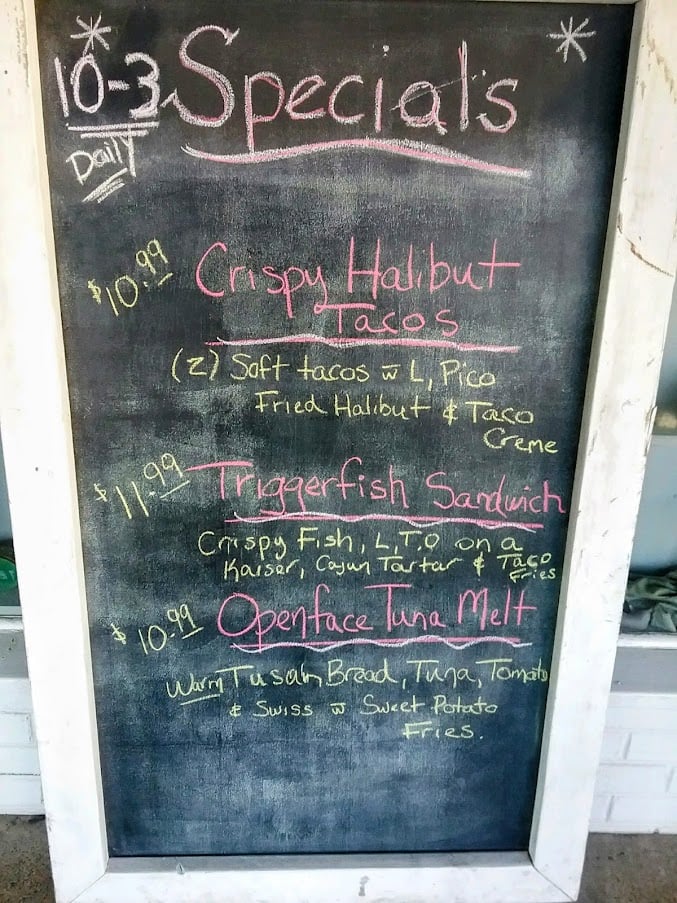 * *
10-3 Special's
Daily
$10.99 Crispy Halibut
Tacos
(2) Soft tacos w̅ L, Pico
Fried Halibut & Taco
Creme
$11.99 Triggerfish Sandwich
Crispy Fish, L,T,O on a
Kaiser, Cajun Tartar & Taco
Fries
$10.99 Openface Tuna Melt
Warm Tusain Bread, Tuna, Tomato
& Swiss w̅ Sweet Potato
Fries.